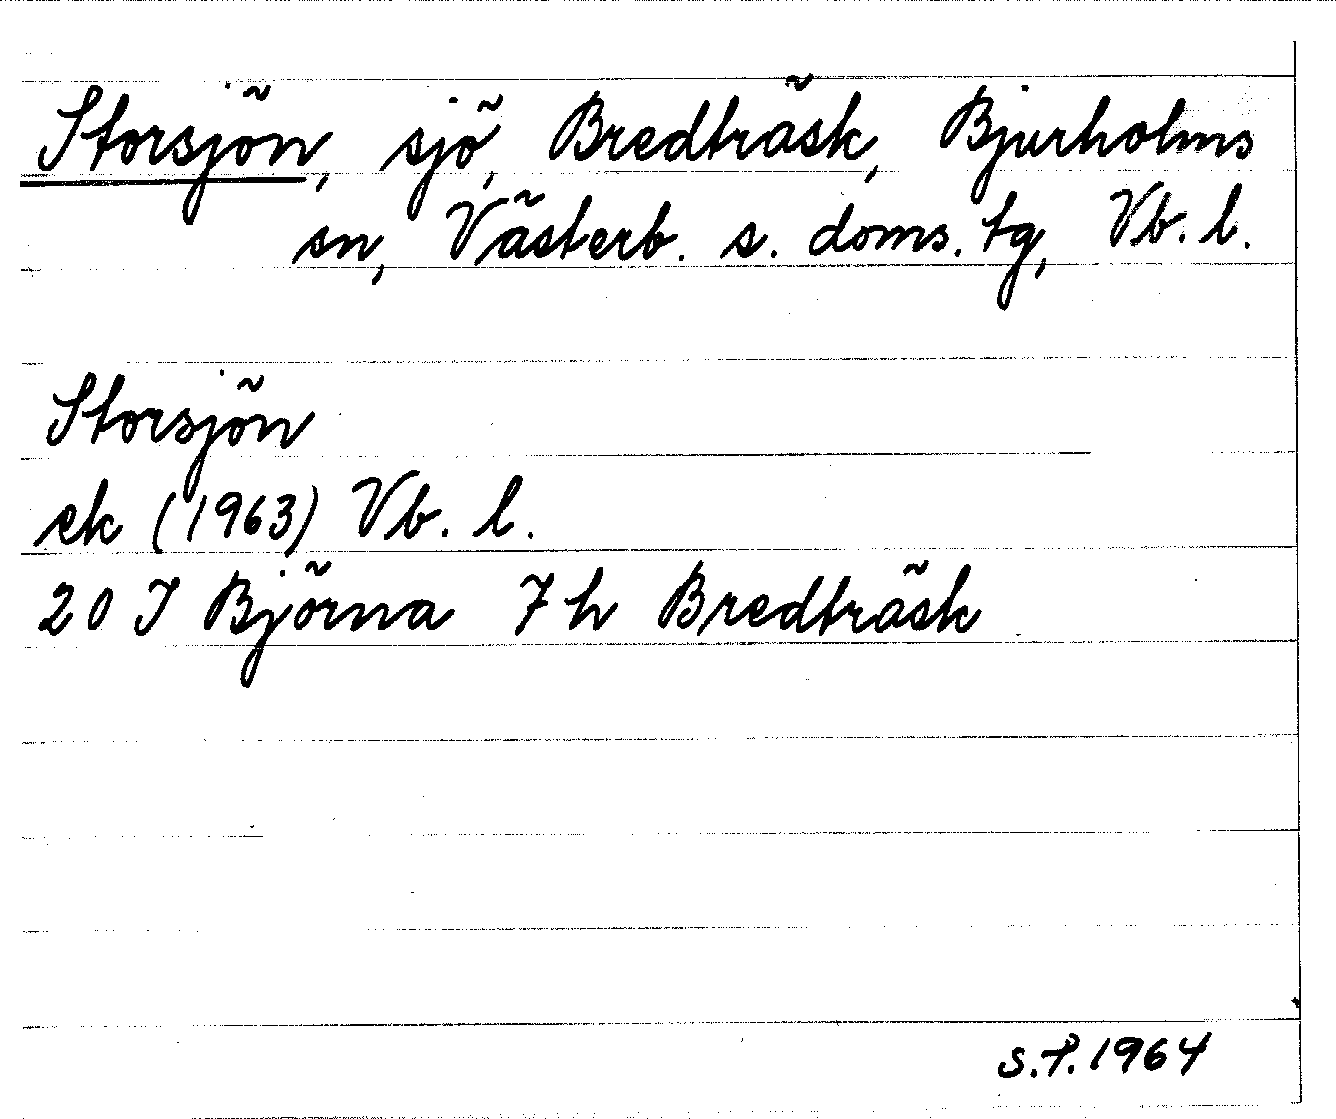 Storsjön, sjö, Bredträsk, Bjurholms
sn, Västerb. s. doms. tg, Vb. l.
Storsjön
ek (1963) Vb. l.
20 J Björna 7 h Bredträsk
S.P. 1964